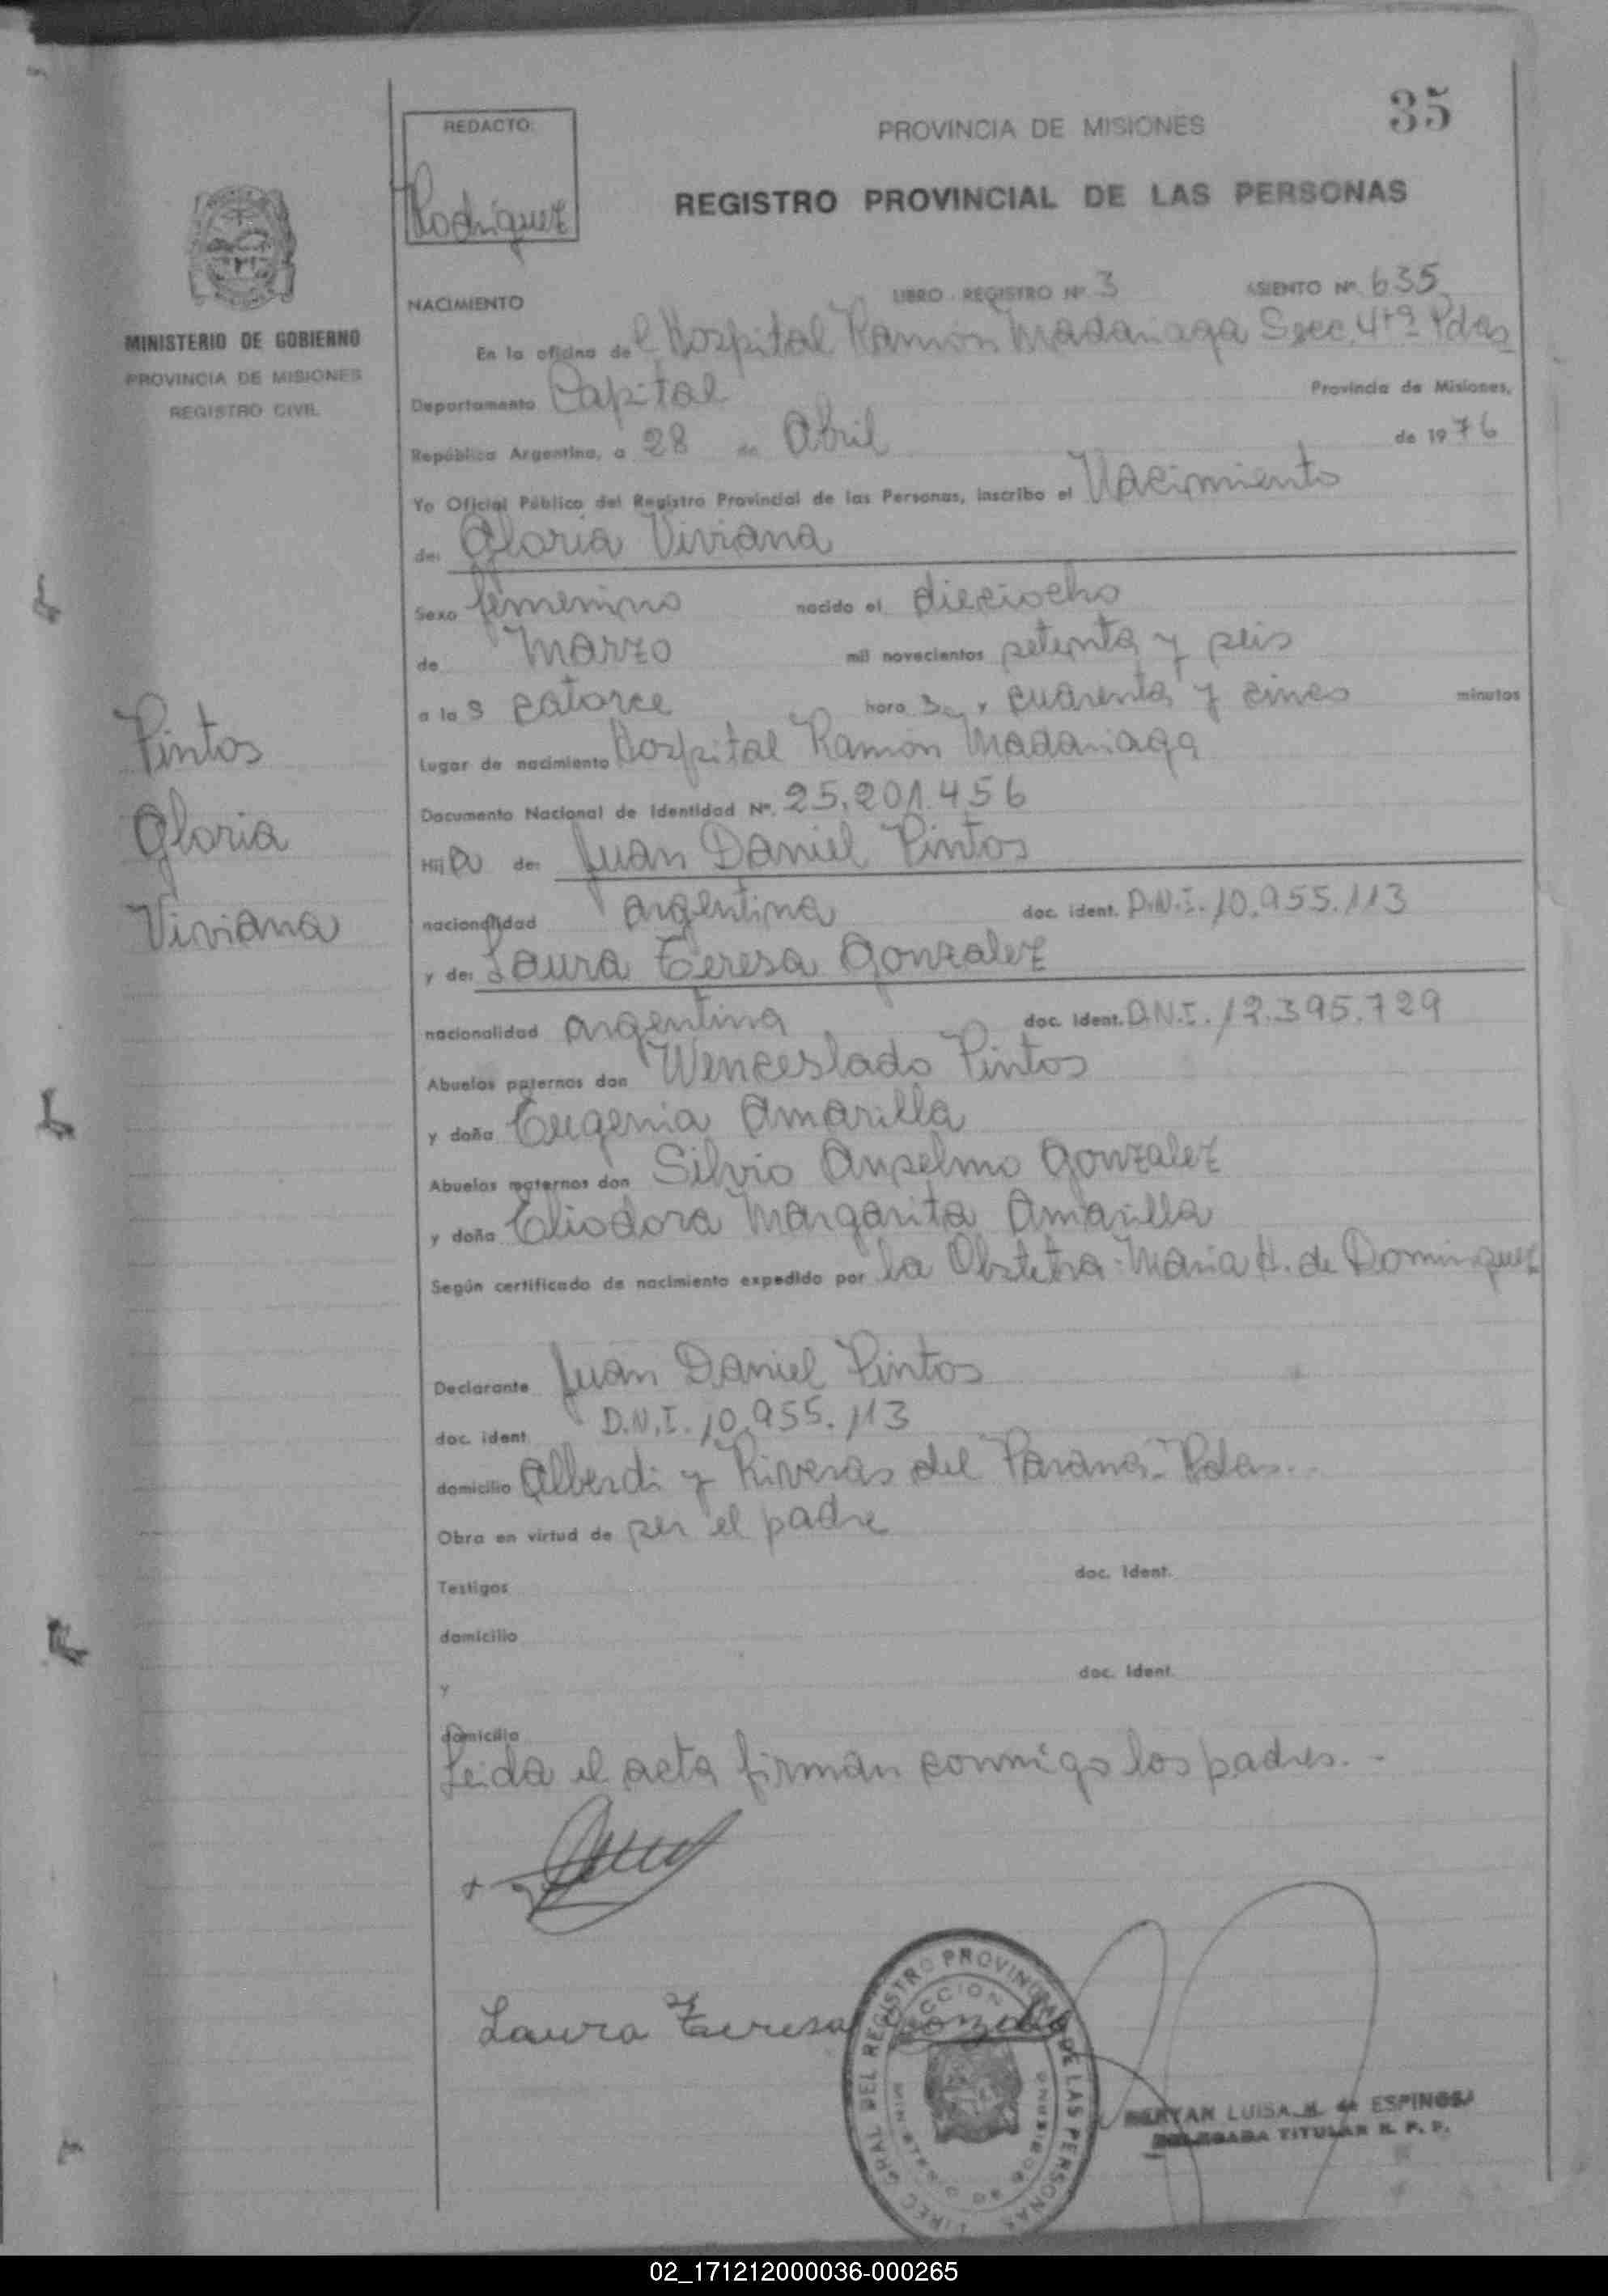 35
REDACTO:
Rodriguez
PROVINCIA DE MISIONES
REGISTRO PROVINCIAL DE LAS PERSONAS
MINISTERIO DE GOBIERNO
PROVINCIA DE MISIONES
REGISTRO CIVIL
NACIMIENTO LIBRO REGISTRO Nº 3 ASIENTO Nº 635
En la oficina del Hospital Ramón Madariaga Secc. 4ta Pdas
Departamento Capital Provincia de Misiones,
República Argentina, a 28 de Abril de 1976
Yo Oficial Público del Registro Provincial de las Personas, inscribo el Nacimiento
de: Gloria Viviana
Sexo femenino nacido el dieciocho
de Marzo mil novecientos setenta y seis
a las catorce horas y cuarenta y cinco minutos
Lugar de nacimiento Hospital Ramón Madariaga
Documento Nacional de Identidad Nº. 25.201.456
Hija de: Juan Daniel Pintos
nacionalidad argentina doc. ident. D.N.I. 10.955.113
y de: Laura Teresa Gonzalez
nacionalidad argentina doc. ident. D.N.I. 12.395.729
Abuelos paternos don Wenceslado Pintos
y doña Eugenia Amarilla
Abuelos maternos don Silvio Anselmo Gonzalez
y doña Eliodora Margarita Amarilla
Según certificado de nacimiento expedido por la Obstetra: Maria H. de Dominguez
Pintos
Gloria
Viviana
Declarante Juan Daniel Pintos
doc. ident. D.N.I. 10.955.113
domicilio Alberdi y Riveras del Paraná - Pdas.-
Obra en virtud de ser el padre
Testigos doc. ident.
domicilio
y doc. ident.
domicilio
Leida el acta firman conmigo los padres.-
Laura Teresa Gonzalez
DIREC GRAL DEL REGISTRO PROVINCIAL DE LAS PERSONAS
LUISA M. de ESPINOSA
DELEGADA TITULAR R. P. P.
02_171212000036-000265